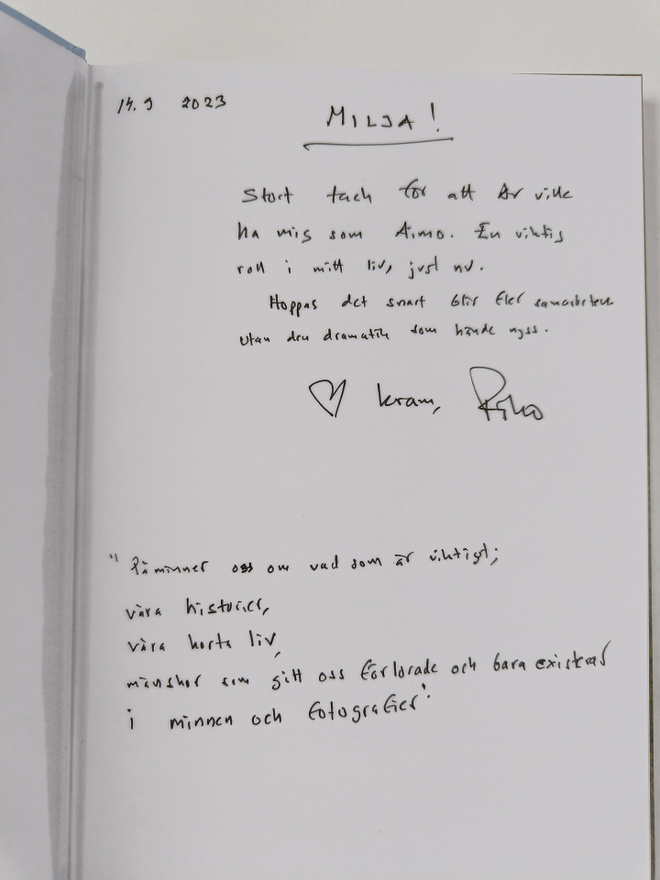 14.9 2023
MILJA!
Stort tack för att du ville
ha mig som Aimo. En viktig
roll i mitt liv, just nu.
Hoppas det snart blir fler samarbeten
utan den dramatik som hände nyss.
♡ kram,
"Påminner oss om vad som är viktigt;
våra historier,
våra korta liv,
mänskor som gått oss förlorade och bara existerar
i minnen och fotografier".